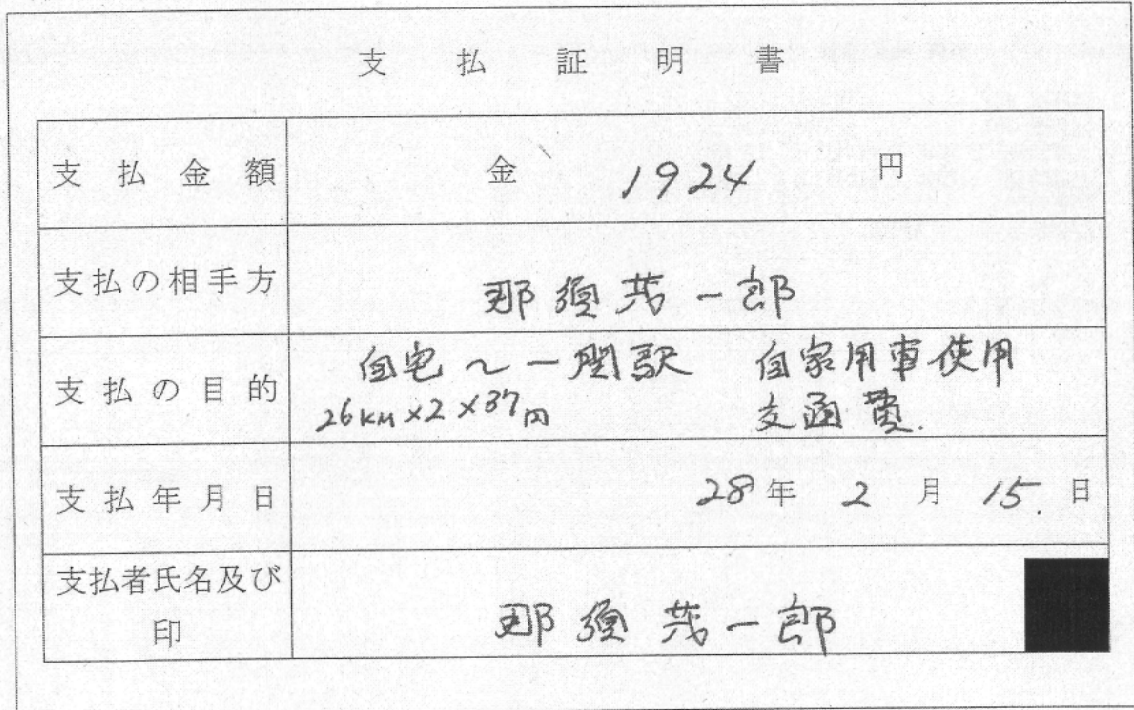 支払証明書
支払金額 金 1924 円
支払の相手方 那須茂一郎
支払の目的 自宅～一関駅 自家用車使用
26km×2×37円 交通費.
支払年月日 28年 2月 15.日
支払者氏名及び
印 那須茂一郎